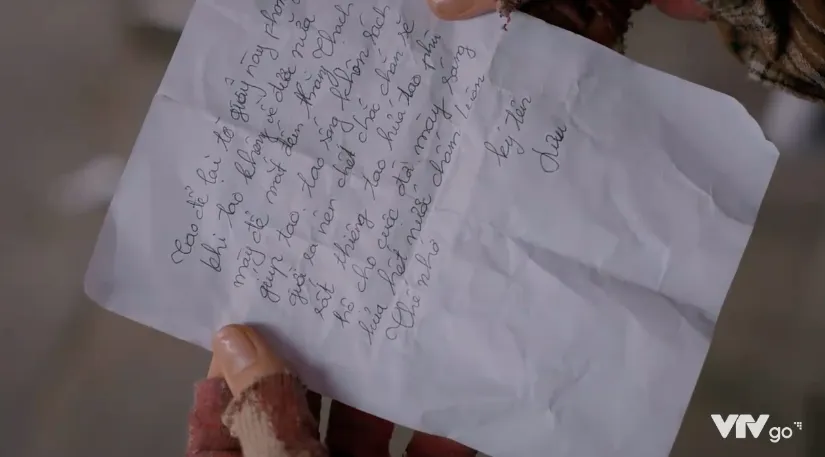 Tao để lại tờ giấy này phòn
khi tao không về được nữa
mày để mắt đến thằng Thạch
giúp tao, tao sống không sách
giời xa nên chết chắc chắn sẽ
rất thiêng tao hứa tao phù
hộ cho cuộc đời mày sáng
sủa hết nước chấm luôn
Thế nhớ
ký tên
Lưu
VTV go